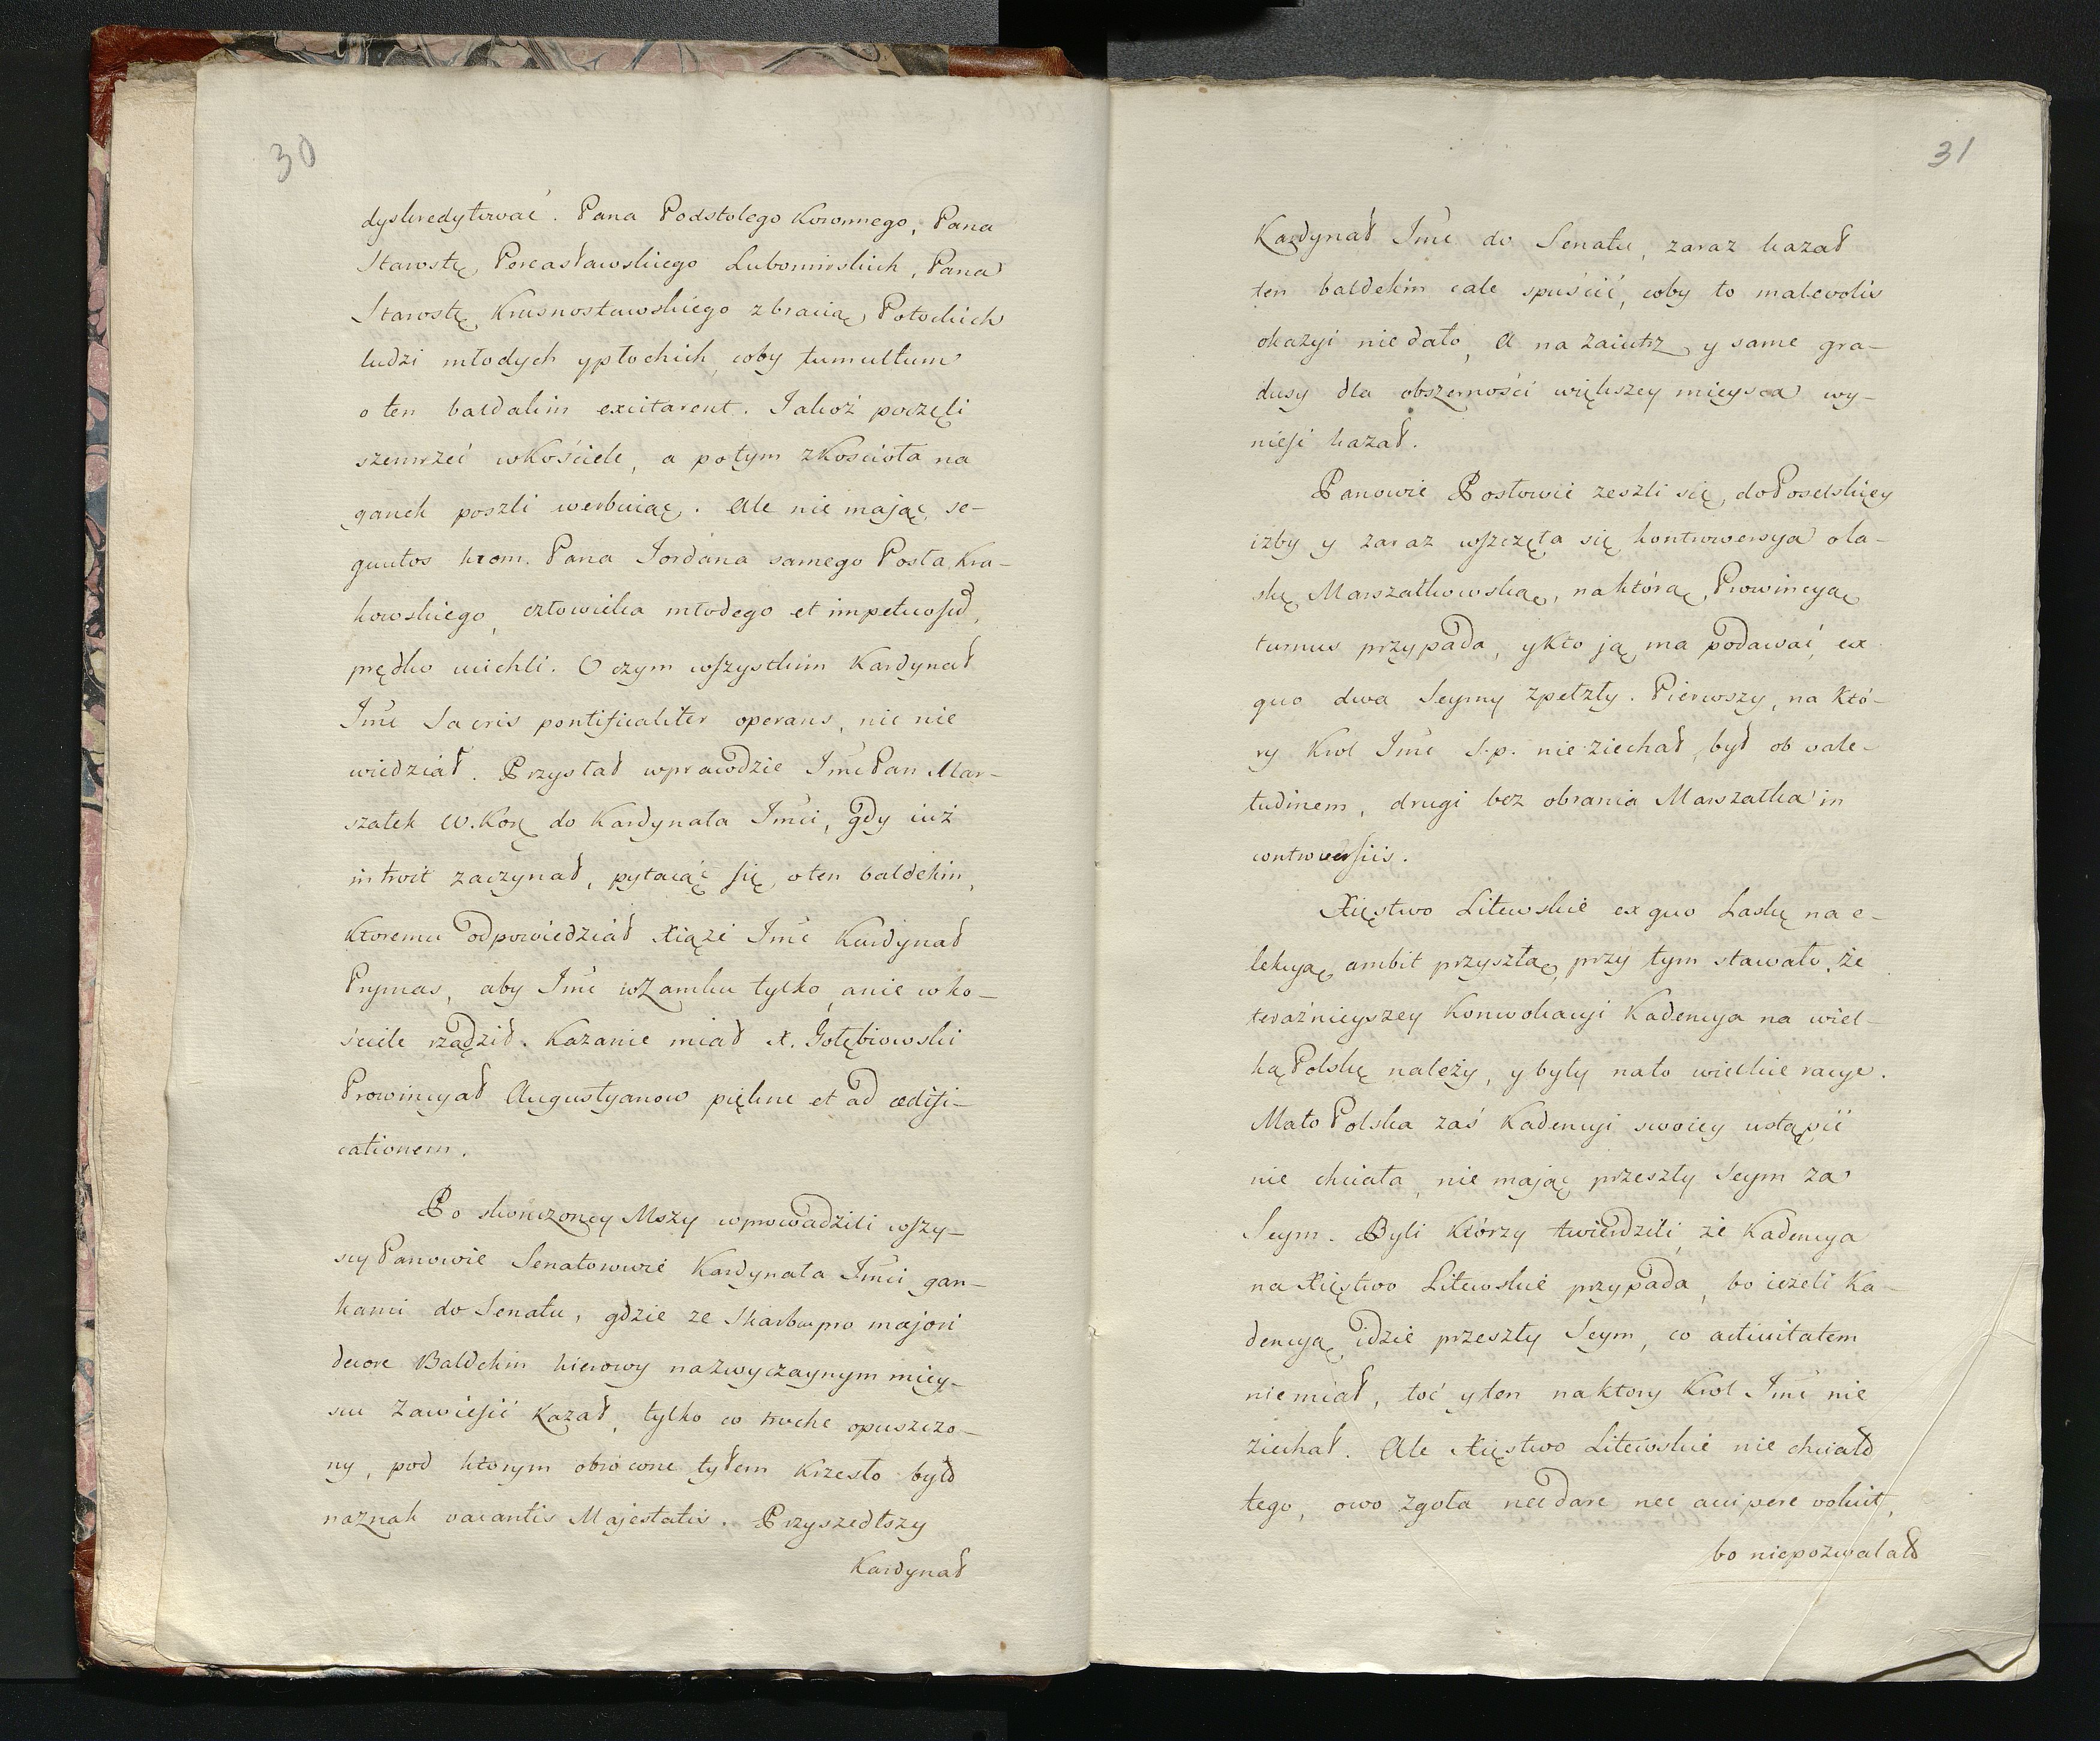 30
dyskredytować. Pana Podstolego Koronnego, Pana
Starostę Pereasławskiego Lubomirskich, Pana
Starostę Krasnostawskiego z bracią Potockich
ludzi młodych y płochich, coby tumultum
o ten baldakin excitarent. Jakoż poczęli
szemrzeć w Kościele, a potym z Kościoła na
ganek poszli werbuiąc. Ale nie mając se-
quutos krom. Pana Jordana samego Posła Kra-
kowskiego, człowieka młodego et impetuosu,
prędko ucichli. O czym wszystkim Kardynał
Jmć Sacris pontificaliter operans, nic nie
wiedział. Przysłał wprawdzie Jmć Pan Mar-
szałek W. Kor. do Kardynała Jmci, gdy iuż
introit zaczynał, pytaiąc się o ten baldekin,
Ktoremu odpowiedział Xiąże Jmć Kardynał
Prymas, aby Jmć w Zamku tylko, a nie w ko-
ściele rządził. Kazanie miał X. Gołębiowski
Prowincyał Augustyanow piękne et ad œdifi-
cationem.
Po skonczoney Mszy wprowadzili wszy-
scy Panowie Senatorowie Kardynała Jmci gan-
kami do Senatu, gdzie ze Skarbu pro majori
decore Baldekin kierowy na zwyczaynym miey-
scu zawiesić kazał, tylko co troche opuszczo-
ny, pod ktorym obrócone tyłem krzesło było
na znak vacantis Majestatis. Przyszedłszy
Kardynał
31
Kardynał Jmć do Senatu, zaraz kazał
ten baldekin cale spuścić, coby to malevolis
okazyi nie dało, a na zaiutrz y same gra-
dusy dla obszerności większey mieysca wy-
nieść kazał.
Panowie Posłowie zeszli się do Poselskiey
izby y zaraz wszczęła się kontrowersya o la-
skę Marszałkowską, na którą Prowincyą
turnus przypada, y kto ją ma podawać, ex
quo dwa Seymy zpełzły. Pierwszy, na któ-
ry Krol Jmć S.p. nie ziechał, był ob vale-
tudinem, drugi bez obrania Marszałka in
controversiis.
Xięstwo Litewskie ex quo Laskę na e-
lekcyą ambit przyszłą, przy tym stawało, że
teraźnieyszey Konwokacyi Kadencya na wiel-
ką Polskę należy, y były na to wielkie racye.
Mało Polska zaś Kadencyi swoiey ustąpić
nie chciała, nie mając przeszły Seym za
Seym. Byli którzy twierdzili, że Kadencya
na Xięstwo Litewskie przypada, bo ieżeli Ka-
dencyą idzie przeszły Seym, co activitatem
nie miał, toć y ten na ktory Krol Jmć nie
ziechał. Ale Xięstwo Litewskie nie chciało
tego, owo zgoła nec dare nec accipere voluit,
bo niepozwalało